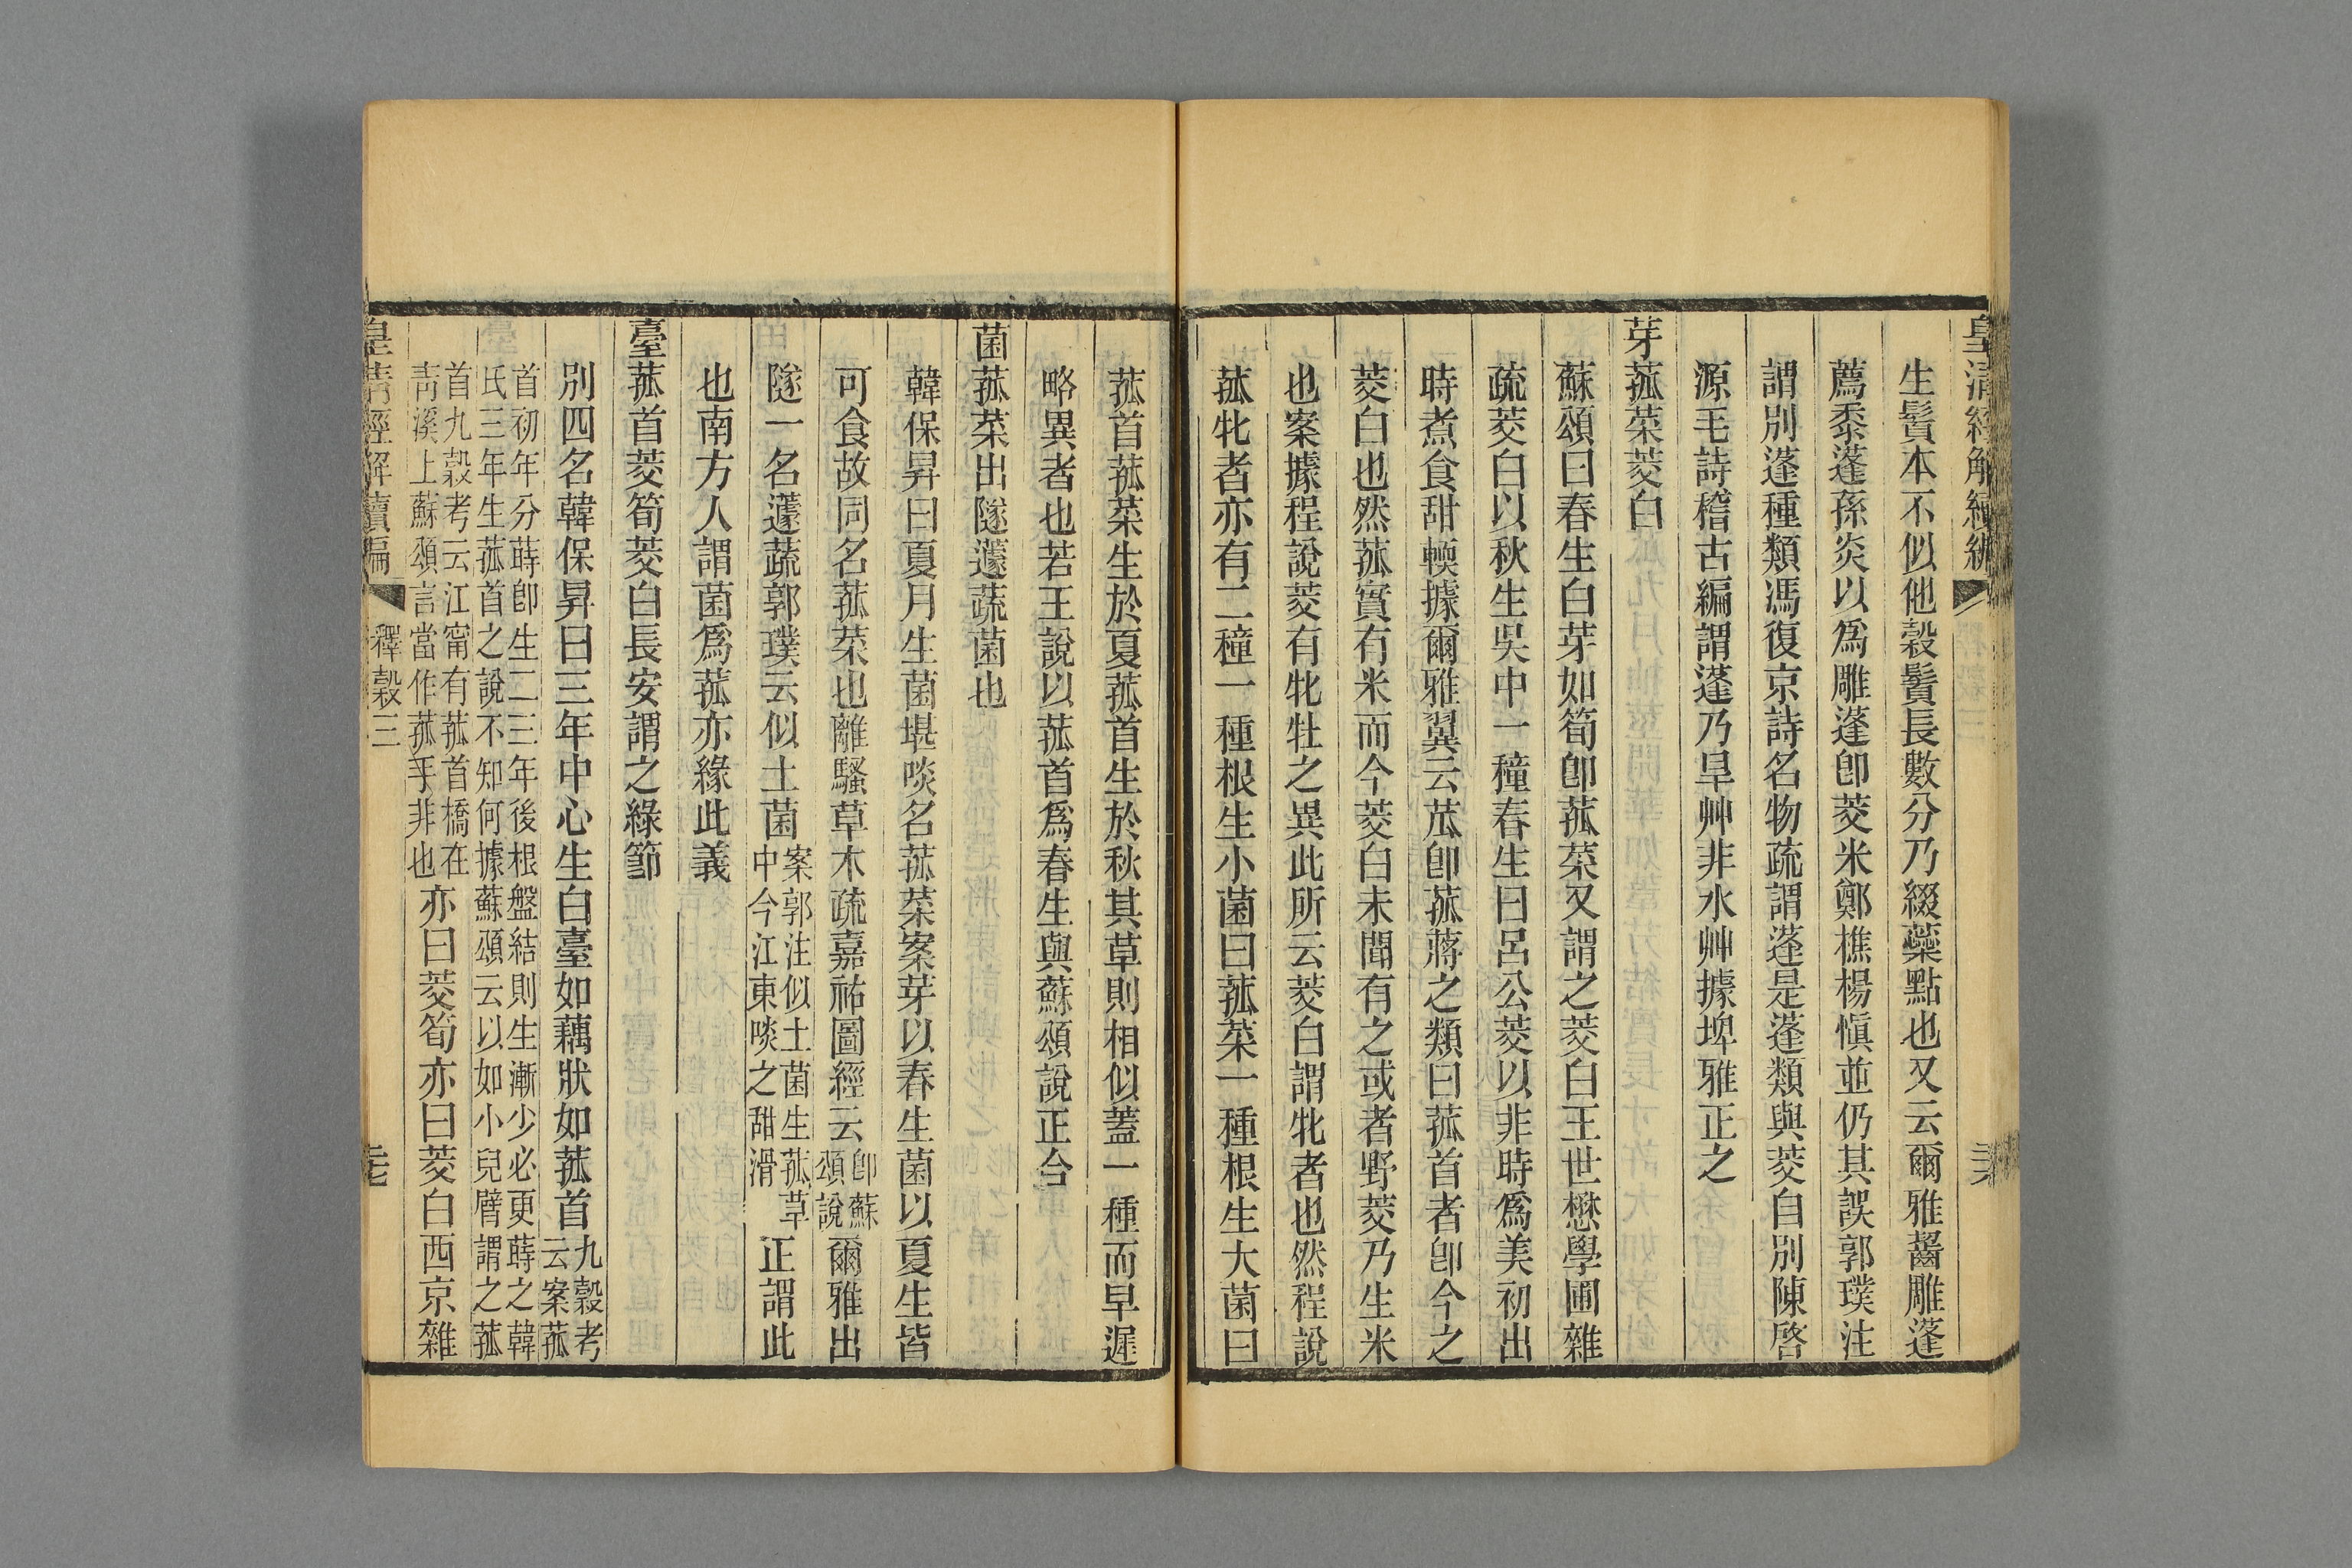 皇淸經解續編
生鬚本不似他穀鬚長數分乃綴蘂點也又云爾雅齧雕蓬
薦黍蓬孫炎以爲雕蓬卽茭米鄭樵楊愼並仍其誤郭璞注
謂別蓬種類馮復京詩名物疏謂蓬是蓬類與茭自別陳啓
源毛詩稽古編謂蓬乃旱艸非水艸據埤雅正之
芽菰菜茭白
蘇頌曰春生白芽如筍卽菰菜又謂之茭白王世懋學圃雜
疏茭白以秋生吳中一種春生曰呂公茭以非時爲美初出
時煮食甜輭據爾雅翼云苽卽菰蔣之類曰菰首者卽今之
茭白也然菰實有米而今茭白未聞有之或者野茭乃生米
也案據程說茭有牝牡之異此所云茭白謂牝者也然程說
菰牝者亦有二種一種根生小菌曰菰菜一種根生大菌曰
菰首菰菜生於夏菰首生於秋其草則相似蓋一種而早遲
略異者也若王說以菰首爲春生與蘇頌說正合
菌菰菜出隧蘧蔬菌也
韓保昇曰夏月生菌堪啖名菰菜案芽以春生菌以夏生皆
可食故同名菰菜也離騷草木疏嘉祐圖經云卽蘇頌說爾雅出
隧一名蘧蔬郭璞云似土菌案郭注似土菌生菰草中今江東啖之甜滑正謂此
也南方人謂菌爲菰亦緣此義
臺菰首茭筍茭白長安謂之綠節
別四名韓保昇曰三年中心生白臺如藕狀如菰首九穀考云案菰
首初年分蒔卽生二三年後根盤結則生漸少必更蒔之韓
氏三年生菰首之說不知何據蘇頌云以如小兒臂謂之菰
首九穀考云江甯有菰首橋在
靑溪上蘇頌言當作菰手非也亦曰茭筍亦曰茭白西京雜
皇淸經解續編
釋穀三